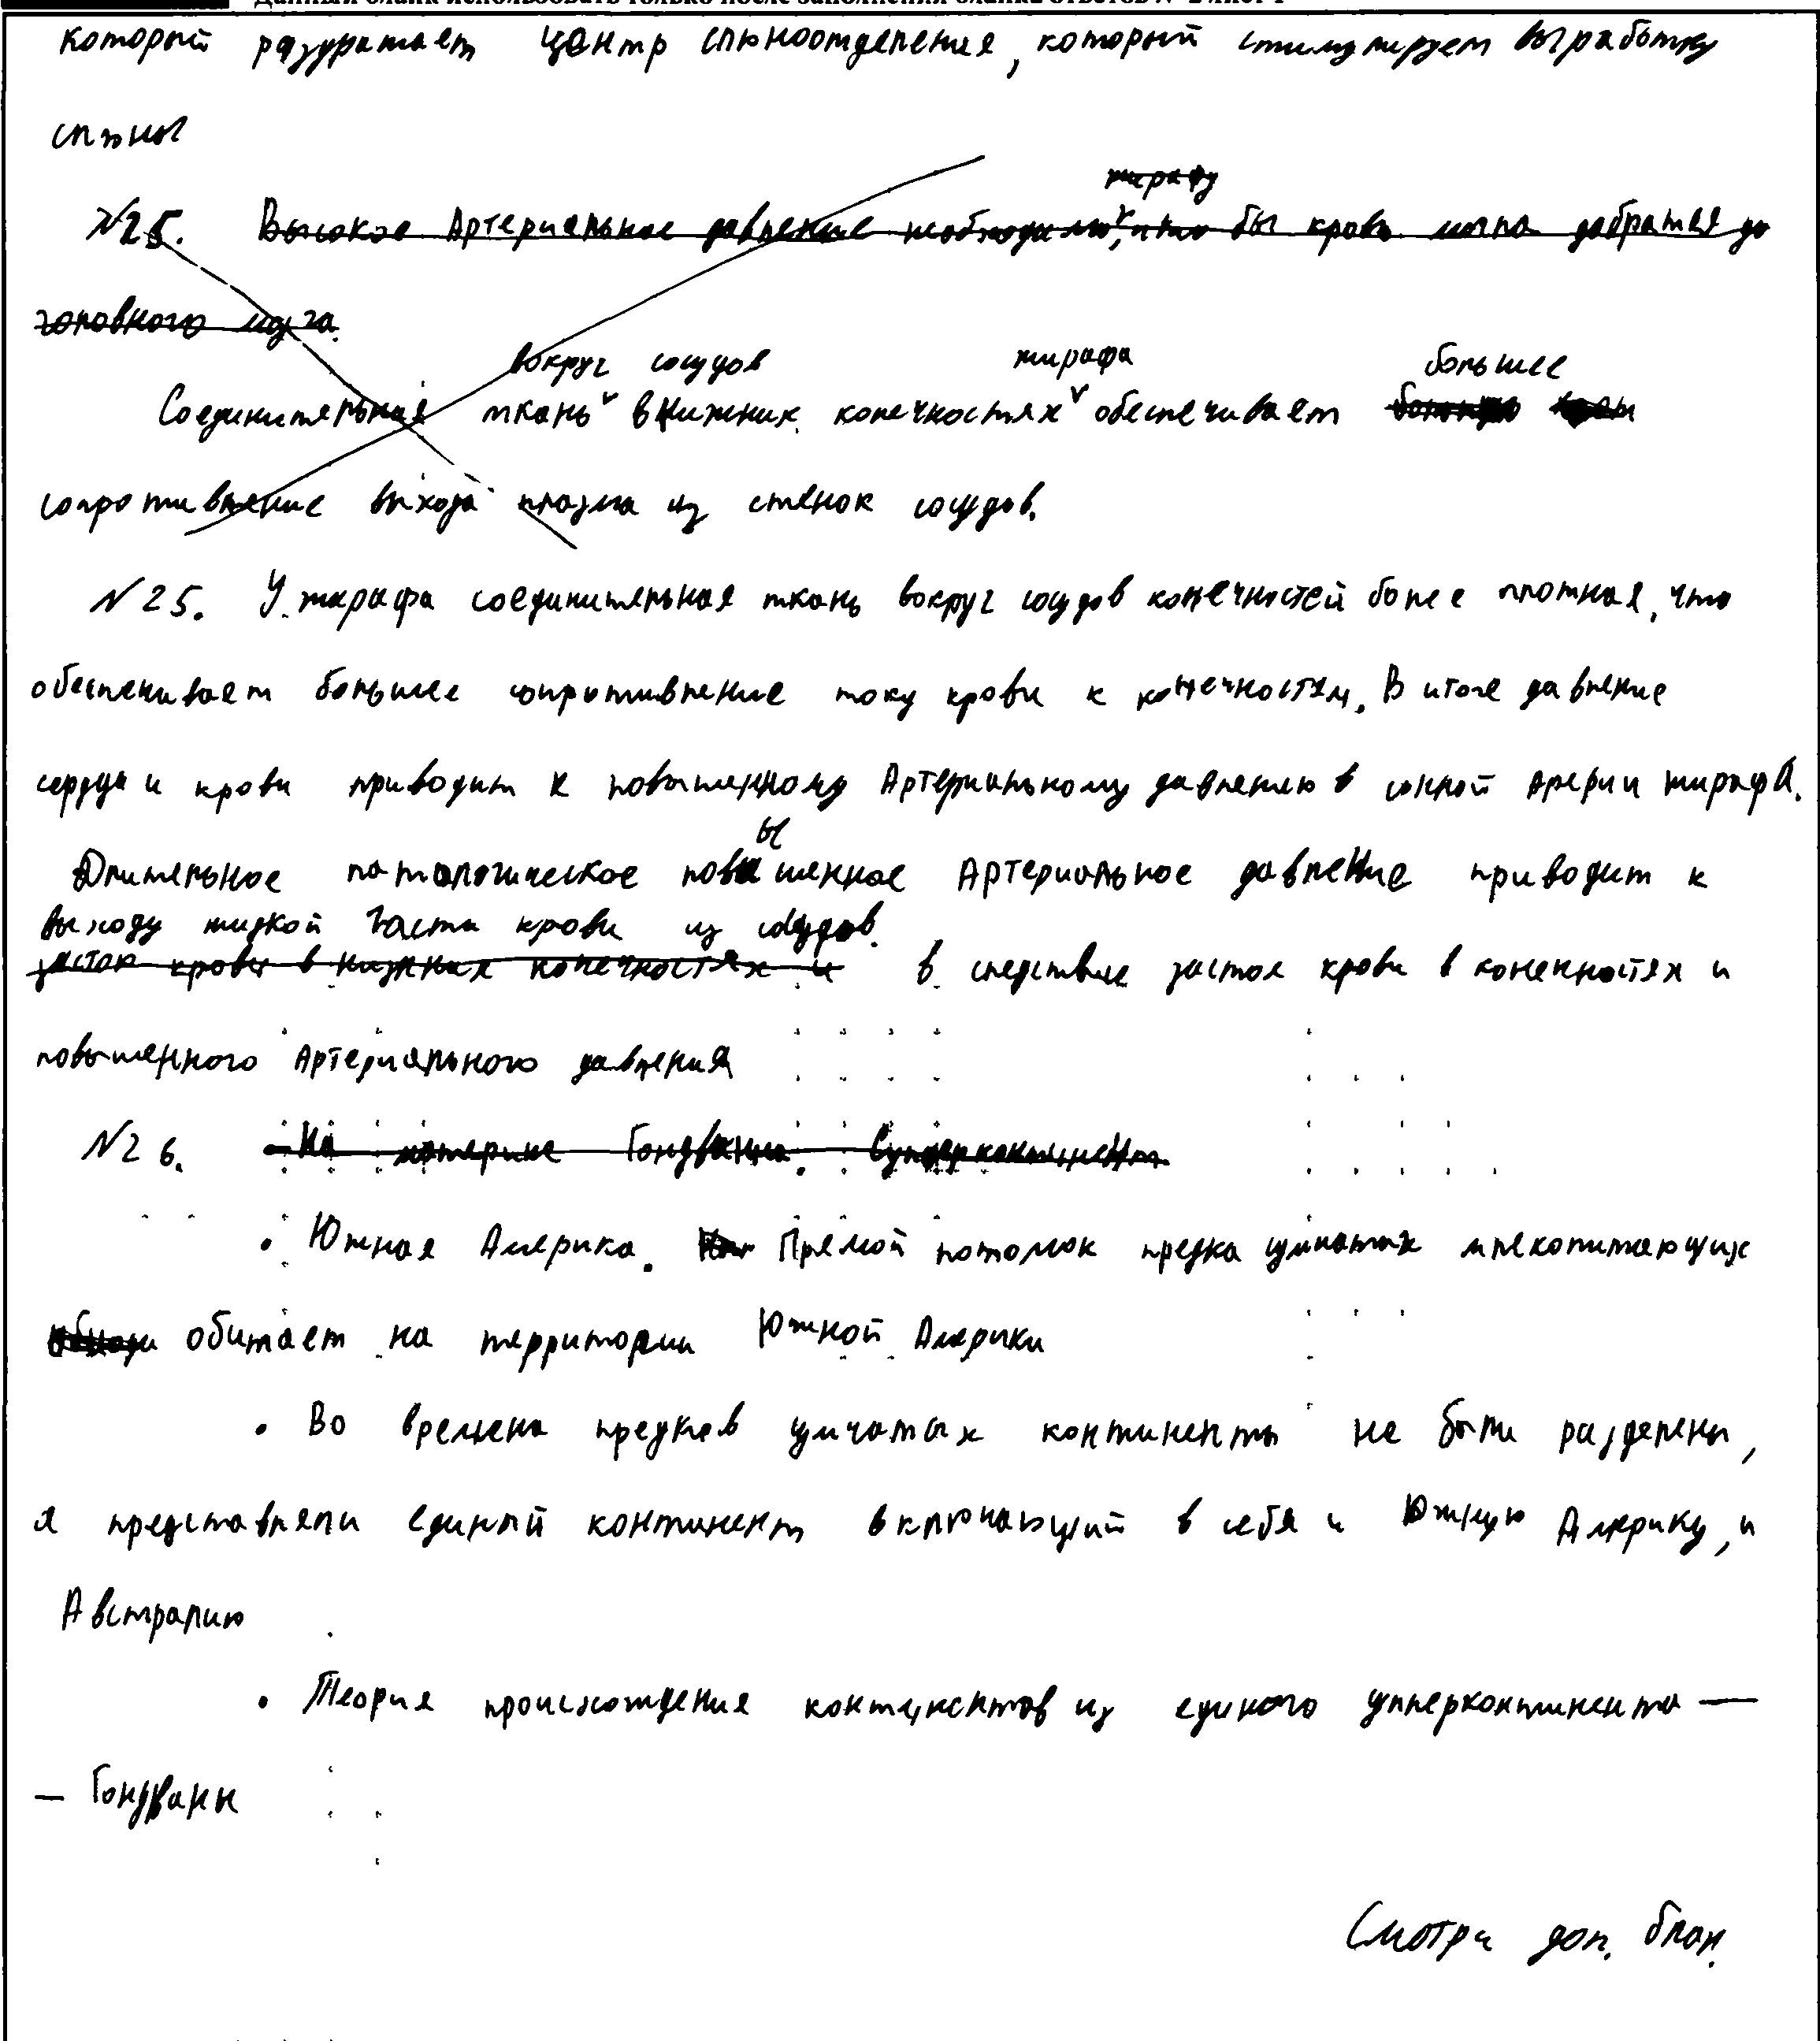 Данный бланк использовать только после заполнения бланка ответов № 2 лист 1
который раздражает центр слюноотделения, который стимулирует выработку
слюны
жирафу
№25. Высокое Артериальное давление необходимо, что бы кровь могла добраться до
головного мозга.
вокруг сосудов жирафа большее
Соединительная ткань в нижних конечностях обеспечивает
сопротивление выхода плазма из стенок сосудов.
№25. У жирафа соединительная ткань вокруг сосудов конечностей более плотная, что
обеспечивает большее сопротивление току крови к конечностям. В итоге давление
сердца и крови приводит к повышенному Артериальному давлению в сонной Арерии жирафа.
ы
Длительное патологическое повышенное Артериальное давление приводит к
выходу жидкой части крови из сосудов.
застою крови в нижних конечностях и в следствие застоя крови в конечностях и
повышенного Артериального давления
№26. - На материке Гондвана. Суперконтинент
• Южная Америка. Прямой потомок предка сумчатых млекопитающих
обитает на территории Южной Америки
• Во времена предков сумчатых континенты не были разделены,
а представляли единый континент включающий в себя и Южную Америку, и
Австралию
• Теория происхождения континентов из единого супперконтинента —
— Гондваны
Смотри доп. блан.